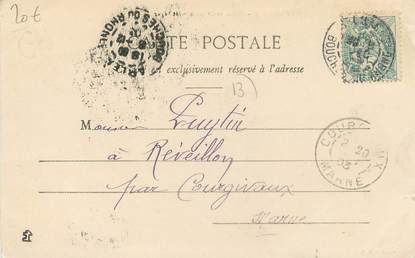 20€
CARTE POSTALE
Ce côté est exclusivement réservé à l'adresse
13
Monsieur Puytin
à Réveillon
par Courgivaux
Marne
ARLES
BOUCHES DU RHONE
COURGIVAUX
2 20
03
MARNE